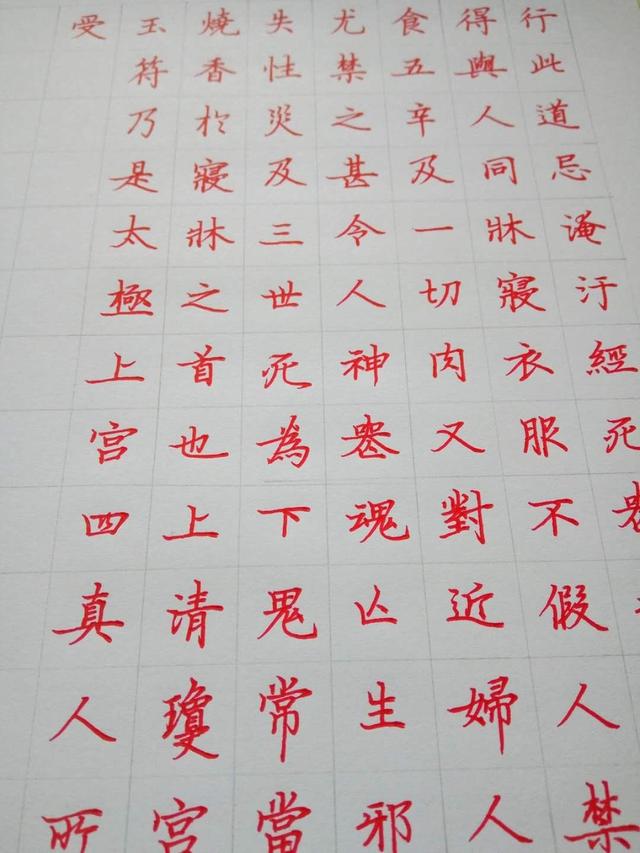 行此道忌淹汙經死喪
得與人同牀寢衣服不假人禁
食五辛及一切肉又對近婦人
尤禁之甚令人神喪魂亡生邪
失性災及三世死為下鬼常當
燒香於寢牀之首也上清瓊宮
玉符乃是太極上宮四真人所
受